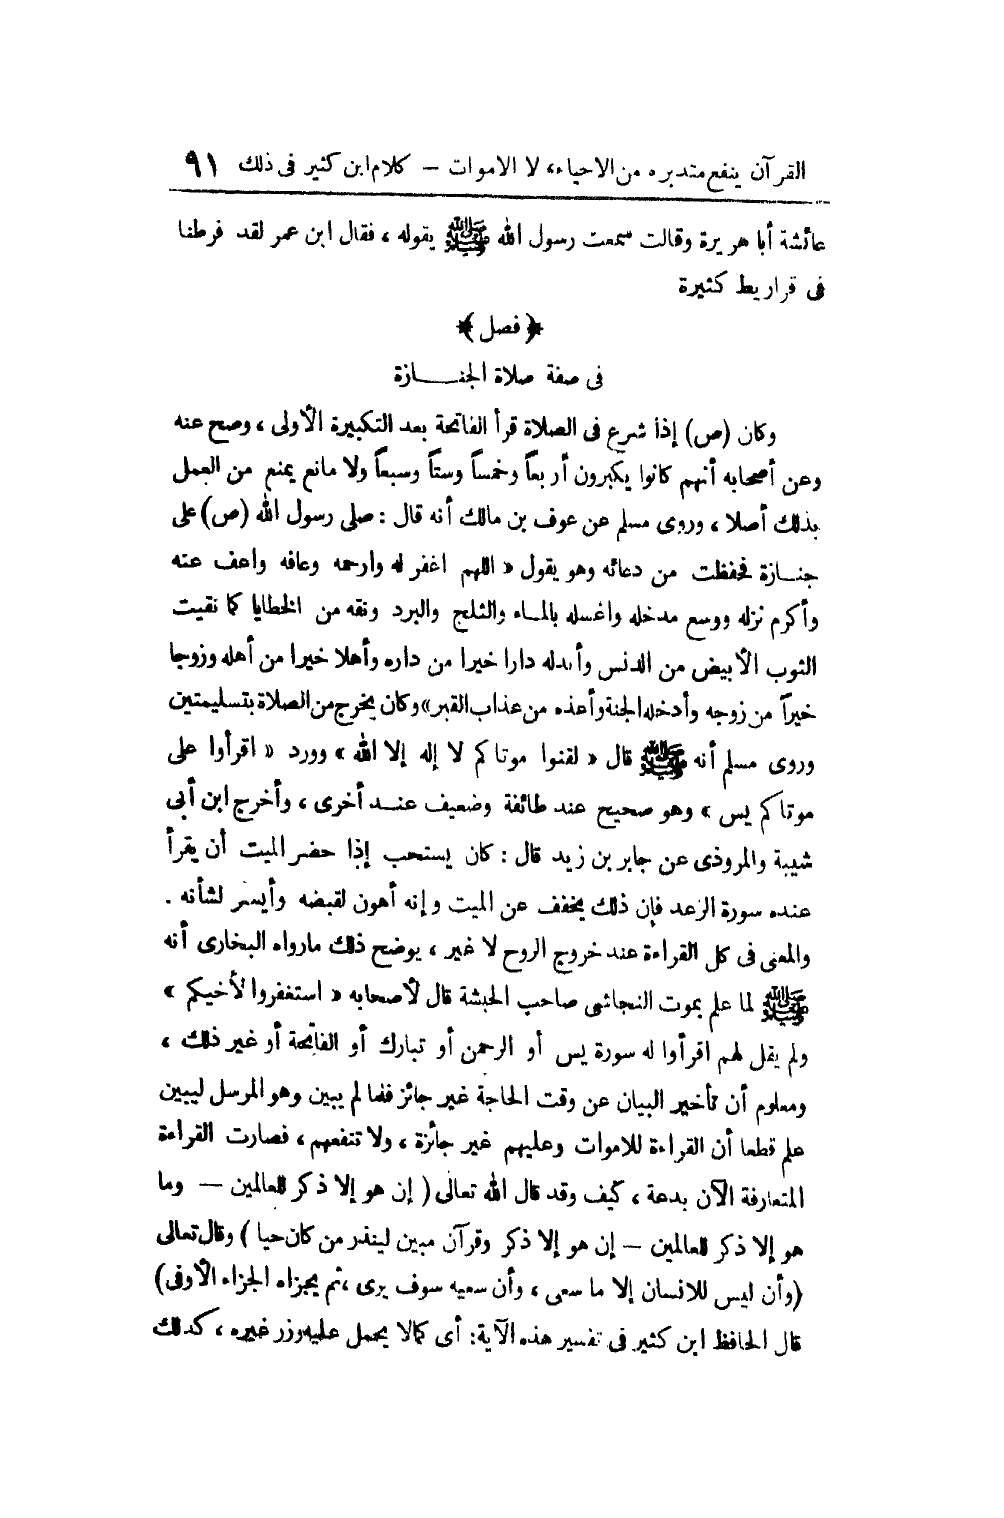 القرآن ينفع متدبره من الاحياء، لا الاموات — كلام ابن كثير فى ذلك ٩١
عائشة أبا هريرة وقالت سمعت رسول الله ﷺ يقوله ، فقال ابن عمر لقد فرطنا
فى قراريط كثيرة
﴿ فصل ﴾
فى صفة صلاة الجنـــازة
وكان (ص) إذا شرع فى الصلاة قرأ الفاتحة بعد التكبيرة الأولى ، وصح عنه
وعن أصحابه أنهم كانوا يكبرون أربعاً وخمساً وستاً وسبعاً ولا مانع يمنع من العمل
بذلك أصلا ، وروى مسلم عن عوف بن مالك أنه قال : صلى رسول الله (ص) على
جنــازة فحفظت من دعائه وهو يقول « اللهم اغفر له وارحمه وعافه واعف عنه
وأكرم نزله ووسع مدخله واغسله بالمــاء والثلج والبرد ونقه من الخطايا كما نقيت
الثوب الأبيض من الدنس وأبدله دارا خيرا من داره وأهلا خيرا من أهله وزوجا
خيراً من زوجه وأدخله الجنة وأعذه من عذاب القبر » وكان يخرج من الصلاة بتسليمتين
وروى مسلم أنه ﷺ قال « لقنوا موتاكم لا إله إلا الله » وورد « اقرأوا على
موتاكم يس » وهو صحيح عند طائفة وضعيف عنــد أخرى ، وأخرج ابن أبى
شيبة والمروذى عن جابر بن زيد قال : كان يستحب إذا حضر الميت أن يقرأ
عنده سورة الرعد فإن ذلك يخفف عن الميت وإنه أهون لقبضه وأيسر لشأنه .
والمعنى فى كل القراءة عند خروج الروح لا غير ، يوضح ذلك مارواه البخارى أنه
ﷺ لما علم بموت النجاشى صاحب الحبشة قال لأصحابه « استغفروا لأخيكم »
ولم يقل لهم اقرأوا له سورة يس أو الرحمن أو تبارك أو الفاتحة أو غير ذلك ،
ومعلوم أن تأخير البيان عن وقت الحاجة غير جائز فلما لم يبين وهو المرسل ليبين
علم قطعا أن القراءة للاموات وعليهم غير جائزة ، ولا تنفعهم ، فصارت القراءة
المتعارفة الآن بدعة ، كيف وقد قال الله تعالى ( إن هو إلا ذكر للعالمين — وما
هو إلا ذكر للعالمين — إن هو إلا ذكر وقرآن مبين لينذر من كان حيا ) وقال تعالى
(وأن ليس للانسان إلا ما سعى ، وأن سعيه سوف يرى ، ثم يجزاه الجزاء الأوفى)
قال الحافظ ابن كثير فى تفسير هذه الآية : أى كمالا يحمل عليه وزر غيره ، كذلك